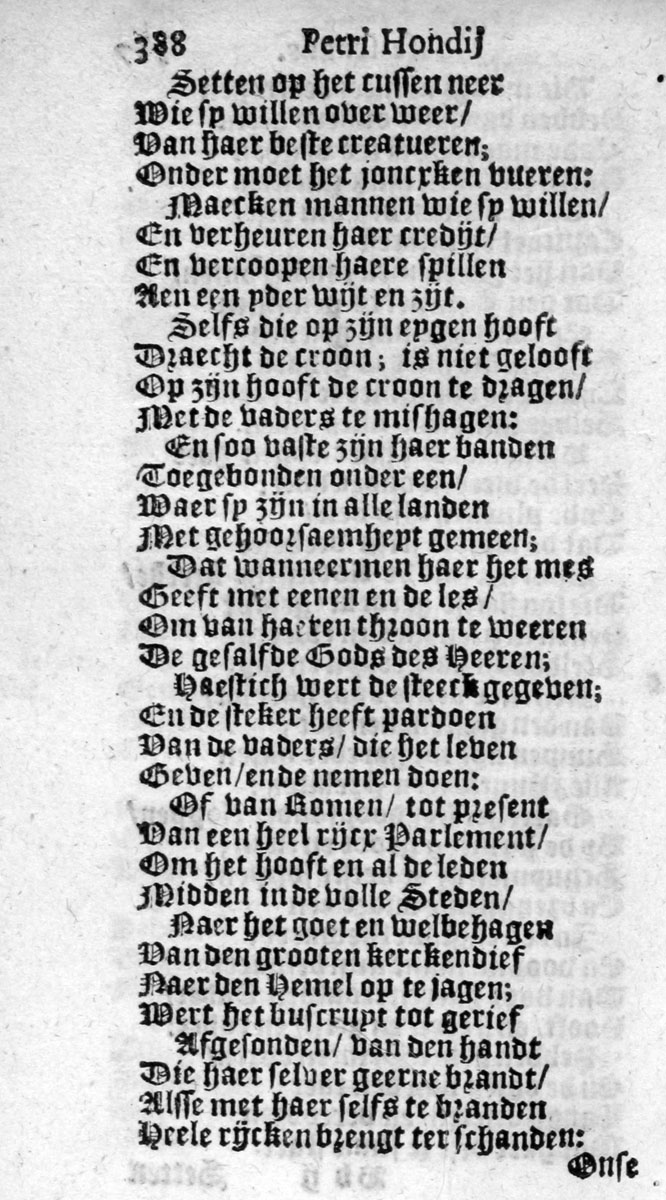 388 Petri Hondij
Setten op het cussen neer
Wie sy willen over weer/
Van haer beste creatueren;
Onder moet het joncxken vueren:
Maecken mannen wie sy willen/
En verheuren haer credijt/
En vercoopen haere spillen
Aen een yder wijt en zijt.
Selfs die op zijn eygen hooft
Draecht de croon; is niet gelooft
Op zijn hooft de croon te dragen/
Met de vaders te mishagen:
En soo vaste zijn haer banden
Toegebonden onder een/
Waer sy zijn in alle landen
Met gehoorsaemheyt gemeen;
Dat wanneermen haer het mes
Geeft met eenen en de les/
Om van haeren throon te weeren
De gesalfde Gods des Heeren;
Haestich wert de steeck gegeven;
En de steker heeft pardoen
Van de vaders/ die het leven
Geven/ende nemen doen:
Of van Romen/ tot present
Van een heel rijcx Parlement/
Om het hooft en al de leden
Midden in de volle Steden/
Naer het goet en welbehagen
Van den grooten kerckendief
Naer den Hemel op te jagen;
Wert het buscrupt tot gerief
Afgesonden/ van den handt
Die haer selver geerne brandt/
Alsse met haer selfs te branden
Heele rijcken brengt ter schanden:
Onse